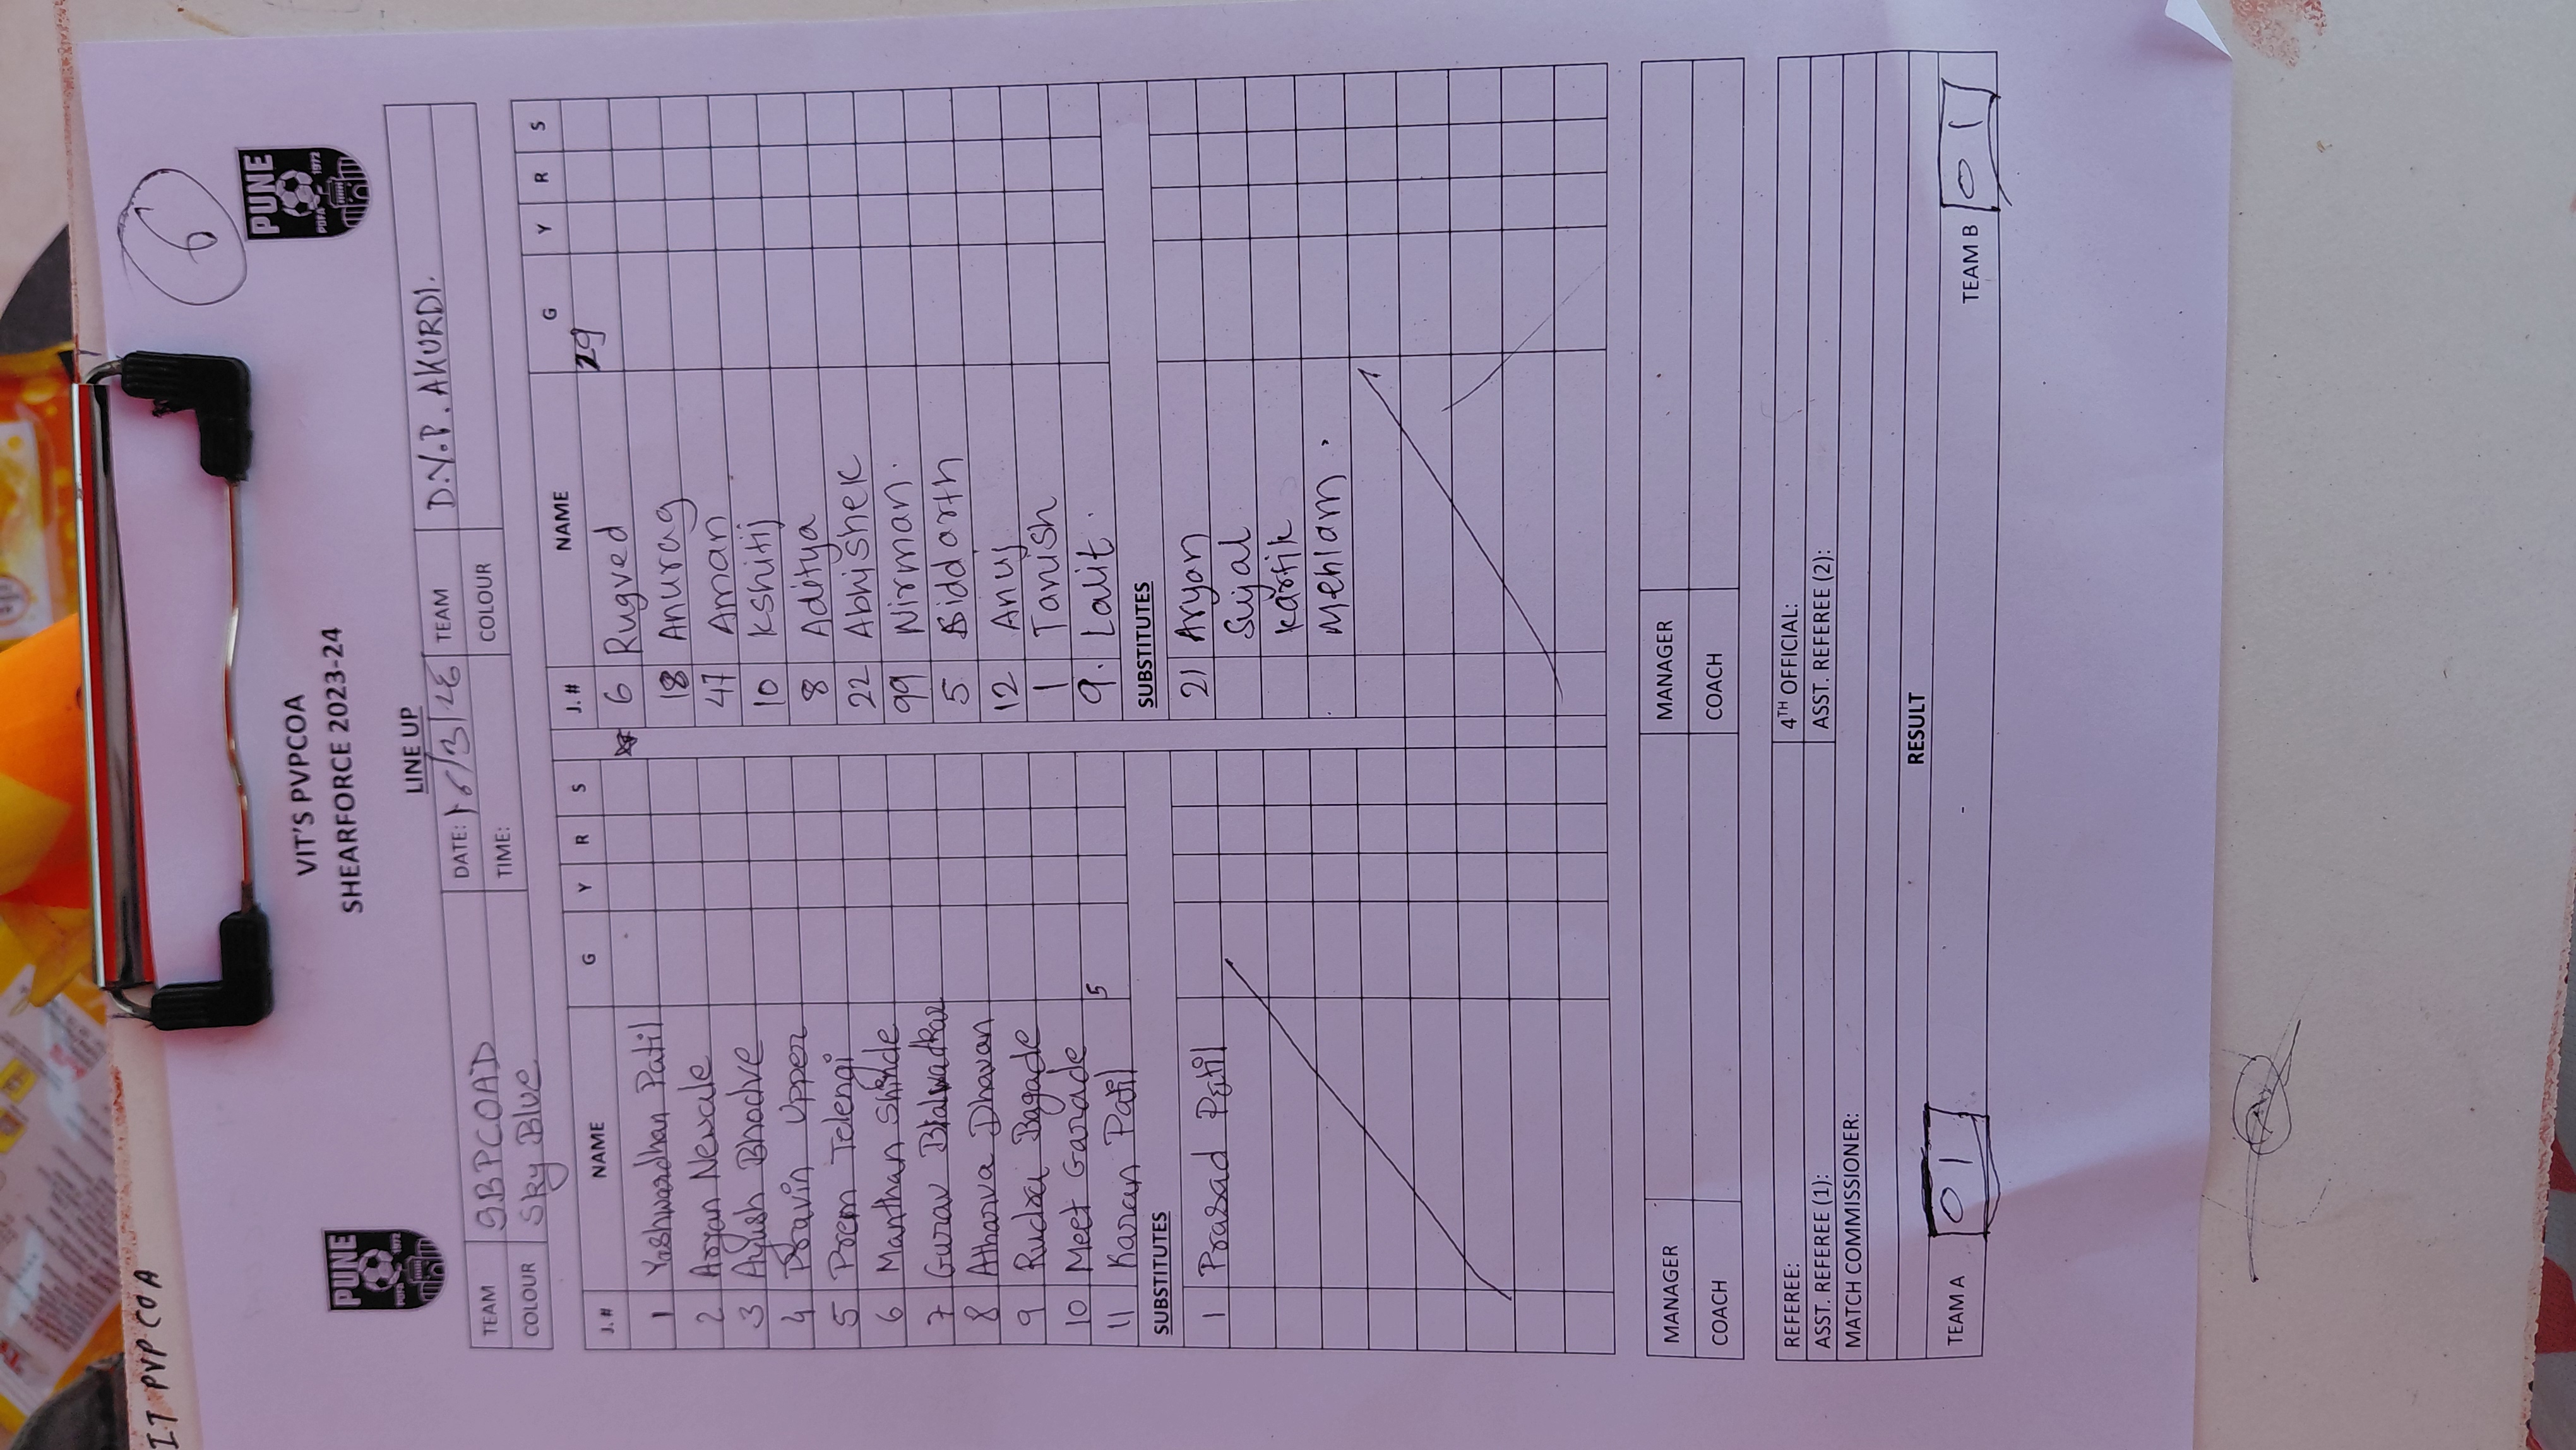 IT PVP COA
6
PUNE
PDFA 1972
PUNE
PDFA 1972
VIT'S PVPCOA
SHEARFORCE 2023-24
LINE UP
TEAM GBPCOAD DATE: TEAM D.Y.P. AKURDI.
COLOUR Sky Blue TIME: COLOUR
J.# NAME G Y R S J.# NAME G Y R S
1 Yashwardhan Patil 6 Rugved 29
2 Aryan Newale 18 Anurag
3 Ayush Bhodve 47 Aman
4 Pravin Upper 10 Kshitij
5 Prem Telengi 8 Aditya
6 Manthan Shinde 22 Abhishek
7 Gurav 99 Nirman.
8 Atharva Dhavan 5 Siddarth
9 Rudra Bagade 12 Anuj
10 Meet Garade 1 Tanish
11 Karan Patil 5 9. Lalit.
SUBSTITUTES SUBSTITUTES
1 Prasad Patil 21 Aryan
Sujal
Kartik
Mehlam.
MANAGER MANAGER
COACH COACH
REFEREE: 4TH OFFICIAL:
ASST. REFEREE (1): ASST. REFEREE (2):
MATCH COMMISSIONER:
RESULT
TEAM A 01 TEAM B 01